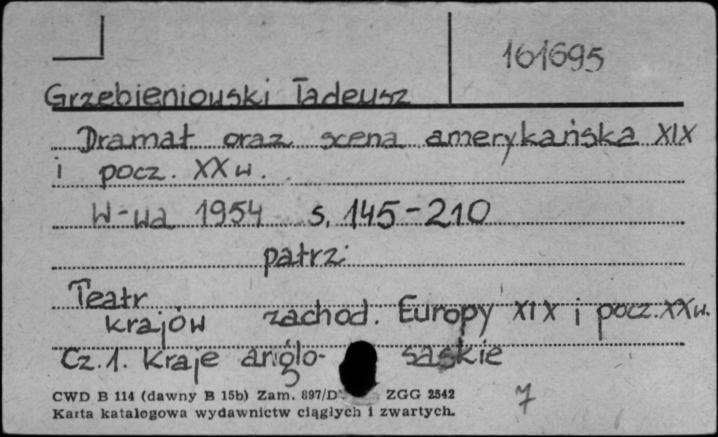 161695
Grzebieniowski Tadeusz
Dramat oraz scena amerykańska XIX
i pocz. XX w.
W-wa 1954 s. 145-210
patrz:
Teatr
krajów zachod. Europy XIX i pocz. XX w.
Cz. 1. Kraje anglo-saskie
CWD B 114 (dawny B 15b) Zam. 897/D ZGG 2542
Karta katalogowa wydawnictw ciągłych i zwartych.
7